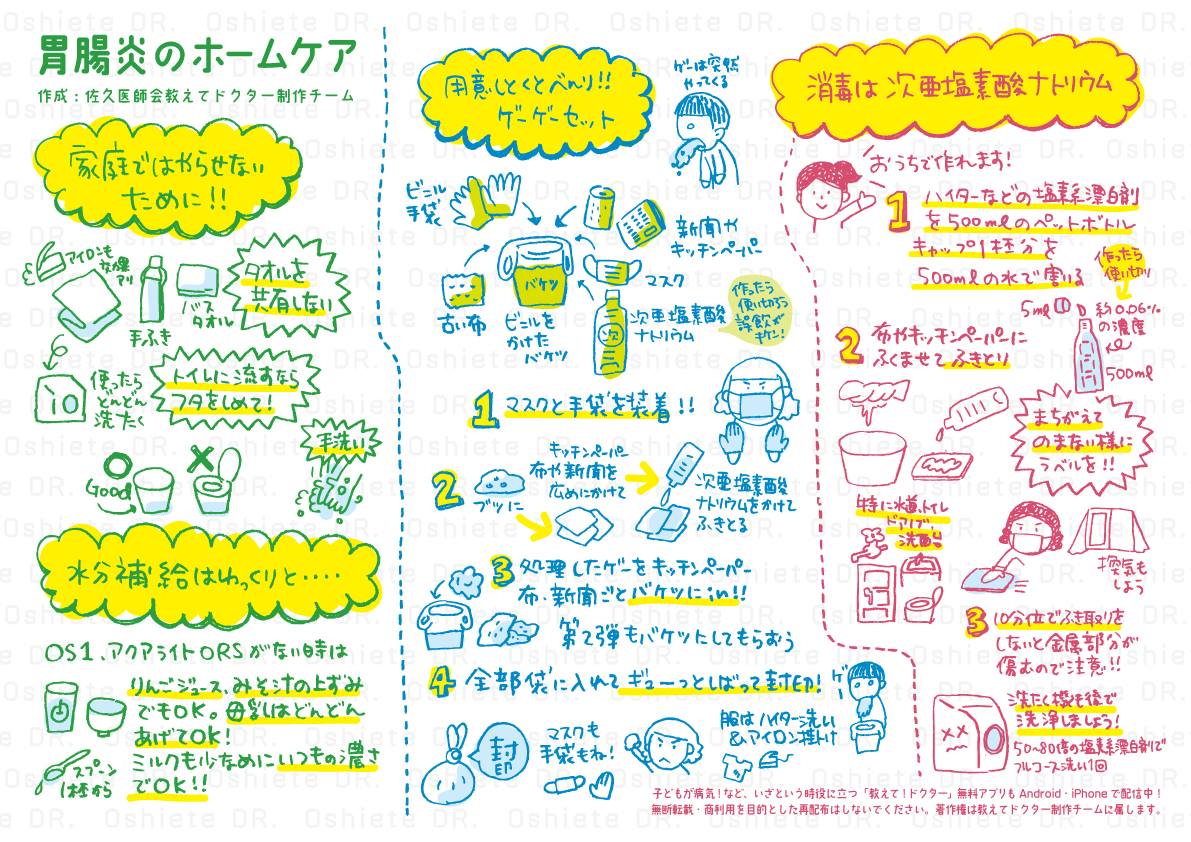 胃腸炎のホームケア
作成：佐久医師会教えてドクター制作チーム
家庭ではやらせない
ために!!
アイロンも
効果
アリ
手ふき
バス
タオル
タオルを
共有しない
使ったら
どんどん
洗たく
トイレに流すなら
フタをしめて!
手洗い
Good
水分補給はゆっくりと‥‥
OS1、アクアライトORSがない時は
りんごジュース、みそ汁の上ずみ
でもOK。母乳はどんどん
あげてOK!
ミルクも少なめにいつもの濃さ
でOK!!
スプーン
1杯から
用意しとくとべんり!!
ゲーゲーセット
ゲーは突然
やってくる
ビニル
手袋
新聞や
キッチンペーパー
バケツ
マスク
古い布
ビニルを
かけた
バケツ
次
次亜塩素酸
ナトリウム
作ったら
使い切ろう
誤飲で
キケン!
1 マスクと手袋を装着!!
2 ブツに
キッチンペーパー
布や新聞を
広めにかけて
次亜塩素酸
ナトリウムをかけて
ふきとる
3 処理したゲーをキッチンペーパー
布、新聞ごとバケツにin!!
第2弾もバケットしてもらおう
4 全部袋に入れてギューっとしばって封印!
封印
マスクも
手袋もね!
服はハイター洗い
&アイロン掛け
消毒は次亜塩素酸ナトリウム
おうちで作れます!
1 ハイターなどの塩素系漂白剤
を500mlのペットボトル
キャップ1杯分を
500mlの水で割る
作ったら
使い切り
5ml
約0.06%
の濃度
500ml
2 布やキッチンペーパーに
ふくませてふきとり
まちがえて
のまない様に
ラベルを!!
特に水道、トイレ
ドアノブ、
洗面台
換気も
しよう
3 10分位でふき取りを
しないと金属部分が
傷むので注意!!
洗たく機も後で
洗浄しましょう!
50〜80倍の塩素系漂白剤で
フルコース洗い1回
子どもが病気！など、いざという時役に立つ「教えて！ドクター」無料アプリも Android・iPhone で配信中！
無断転載・商利用を目的とした再配布はしないでください。著作権は教えてドクター制作チームに属します。